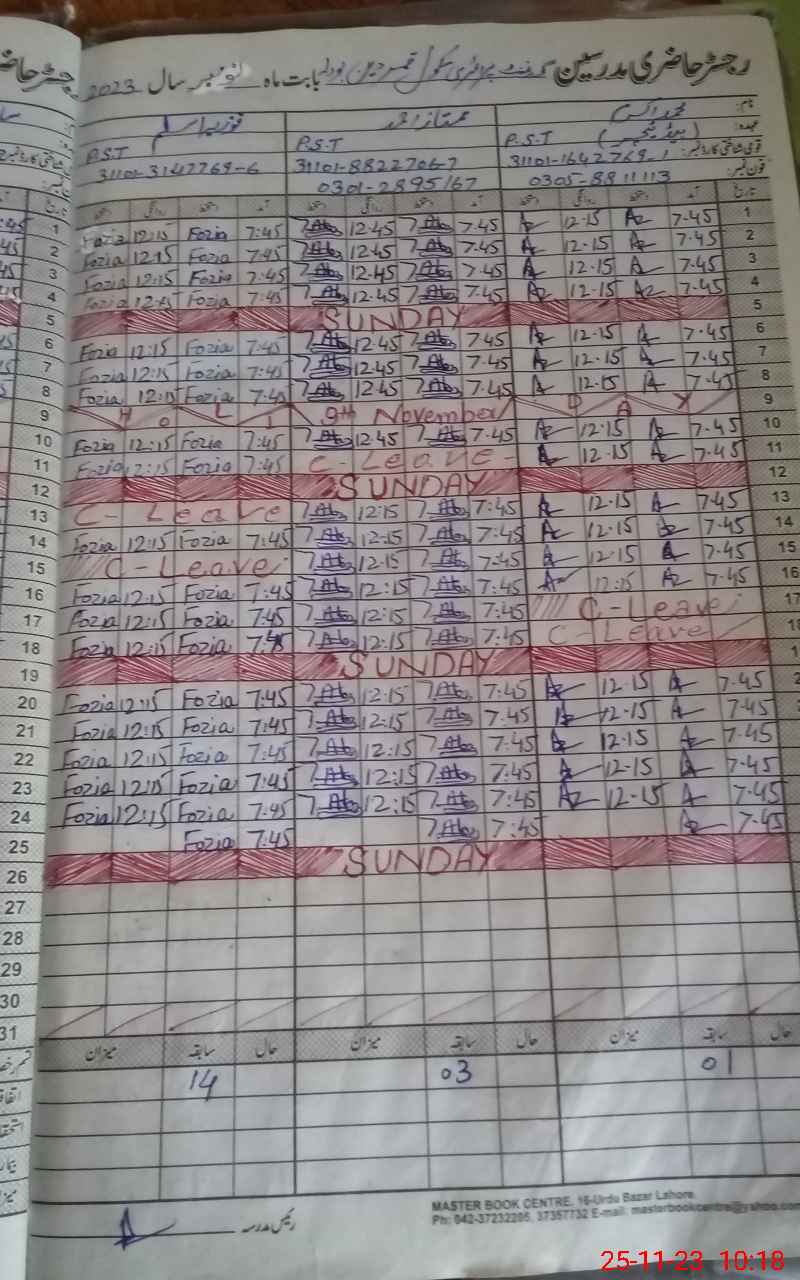 رجسٹر حاضری مدرسین گورنمنٹ پرائمری سکول بابت ماہ نومبر سال 2023
نام: محمد اکرم ممتاز احمد فوزیہ اسلم
عہدہ: P.S.T (ہیڈ ٹیچر) P.S.T P.S.T
قومی شناختی کارڈ نمبر: 31101-1642769-1 31101-8822706-7 31101-3147769-6
فون نمبر: 0305-8811113 0301-2895167
تاریخ آمد دستخط روانگی دستخط آمد دستخط روانگی دستخط آمد دستخط روانگی دستخط
1 Fozia 12:15 Fozia 7:45 12.45 7.45 12-15 7-45 1
2 Fozia 12:15 Fozia 7:45 12.45 7.45 12-15 7-45 2
3 Fozia 12:15 Fozia 7:45 12.45 7.45 12-15 7-45 3
4 Fozia 12:15 Fozia 7:45 12.45 7.45 12-15 7-45 4
5 SUNDAY 5
6 Fozia 12:15 Fozia 7:45 12.45 7.45 12-15 7-45 6
7 Fozia 12:15 Fozia 7:45 12.45 7.45 12-15 7-45 7
8 Fozia 12:15 Fozia 7:45 12.45 7.45 12-15 7-45 8
9 H O L I 9th November D A Y 9
10 Fozia 12:15 Fozia 7:45 12.45 7.45 12-15 7-45 10
11 Fozia 12:15 Fozia 7:45 C-Leave- 12-15 7-45 11
12 SUNDAY 12
13 C-Leave 12:15 7:45 12-15 7-45 13
14 Fozia 12:15 Fozia 7:45 12-15 7:45 12-15 7-45 14
15 C-Leave 12-15 7:45 12-15 7-45 15
16 Fozia 12:15 Fozia 7:45 12:15 7:45 12:15 7-45 16
17 Fozia 12:15 Fozia 7:45 12:15 7:45 C-Leave 17
18 Fozia 12:15 Fozia 7:45 12:15 7:45 C-Leave
19 SUNDAY
20 Fozia 12:15 Fozia 7:45 12:15 7:45 12-15 7-45
21 Fozia 12:15 Fozia 7:45 12:15 7:45 12-15 7-45
22 Fozia 12:15 Fozia 7:45 12:15 7:45 12-15 7-45
23 Fozia 12:15 Fozia 7:45 12:15 7:45 12-15 7-45
24 Fozia 12:15 Fozia 7:45 12:15 7:45 12-15 7-45
25 Fozia 7:45 7:45 7-45
26 SUNDAY
27
28
29
30
31
حال سابقہ میزان حال سابقہ میزان حال سابقہ میزان
14 03 01
رئیس مدرسہ
MASTER BOOK CENTRE, 16-Urdu Bazar Lahore.
Ph: 042-37232205, 37357732 E-mail: masterbookcentre@yahoo.com
25-11-23 10:18